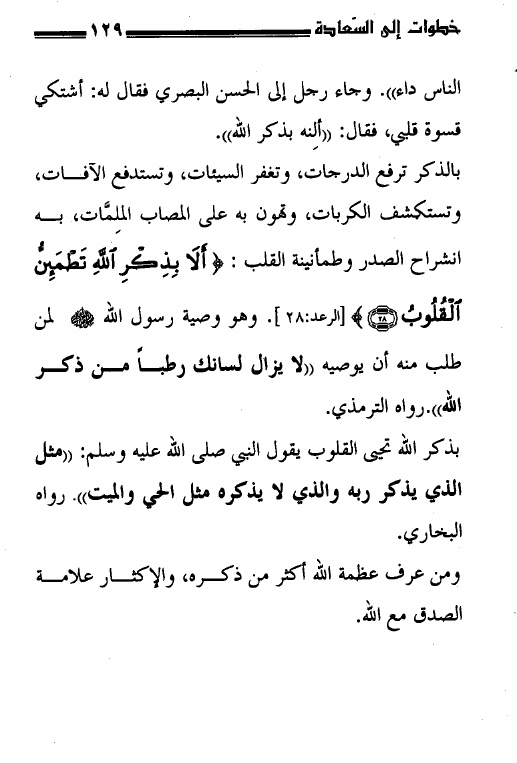 خطوات إلى السّعادة ١٢٩
الناس داء)). وجاء رجل إلى الحسن البصري فقال له: أشتكي
قسوة قلبي، فقال: ((ألِنه بذكر الله)).
بالذكر ترفع الدرجات، وتغفر السيئات، وتستدفع الآفــات،
وتستكشف الكربات، وتهون به على المصاب الملِمَّات، بــه
انشراح الصدر وطمأنينة القلب : ﴿ أَلَا بِذِكْرِ ٱللَّهِ تَطْمَئِنُّ
ٱلْقُلُوبُ ﴿٢٨﴾ ﴾ [الرعد:٢٨]. وهو وصية رسول الله ﷺ لمن
طلب منه أن يوصيه ((لا يزال لسانك رطبــاً مــن ذكــر
الله)).رواه الترمذي.
بذكر الله تحيى القلوب يقول النبي صلى الله عليه وسلم: ((مثل
الذي يذكر ربه والذي لا يذكره مثل الحي والميت)). رواه
البخاري.
ومن عرف عظمة الله أكثر من ذكــره، والإكثــار علامــة
الصدق مع الله.